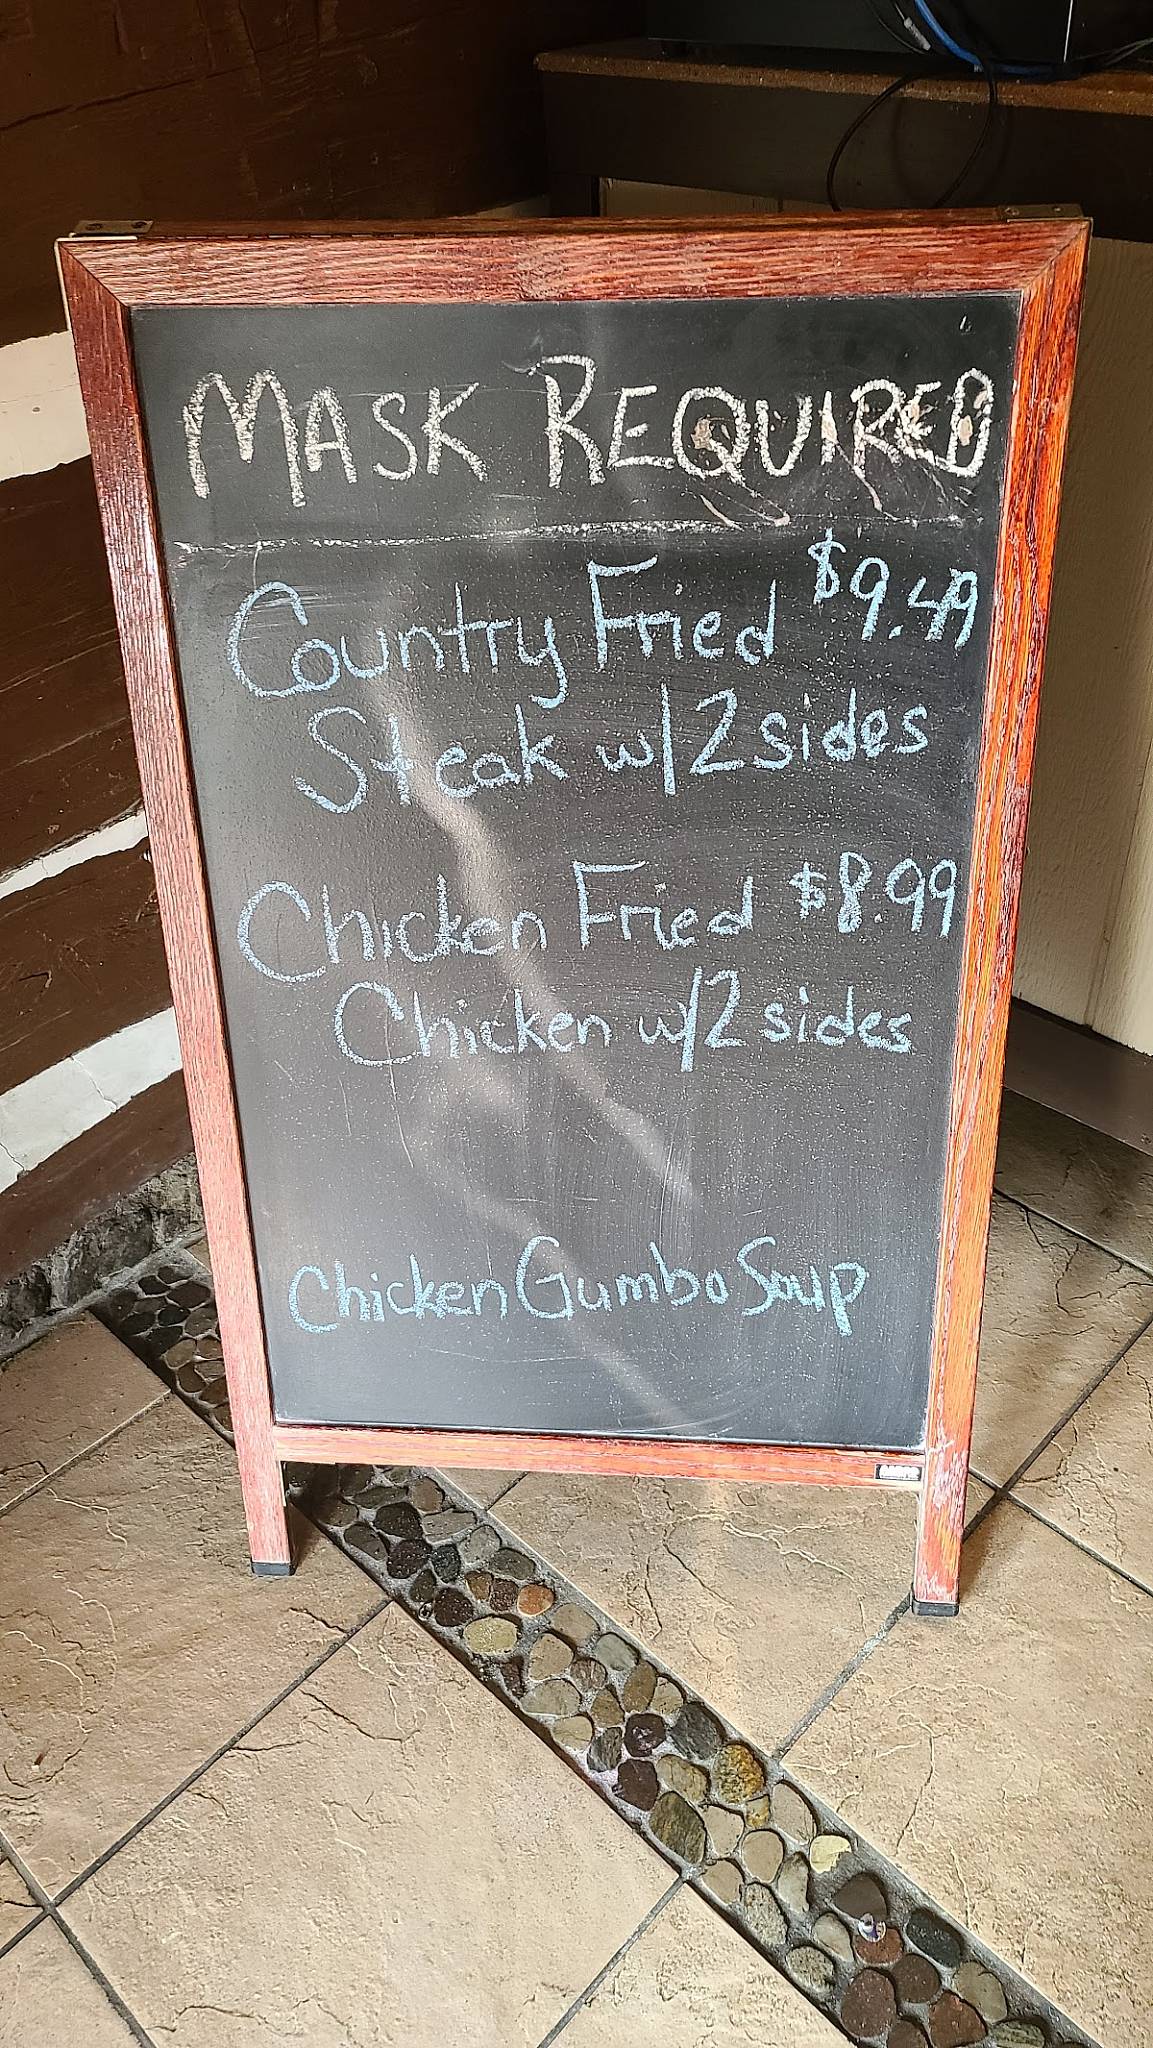 MASK REQUIRED
Country Fried $9.49
Steak w/2 sides
Chicken Fried $8.99
Chicken w/2 sides
Chicken Gumbo Soup